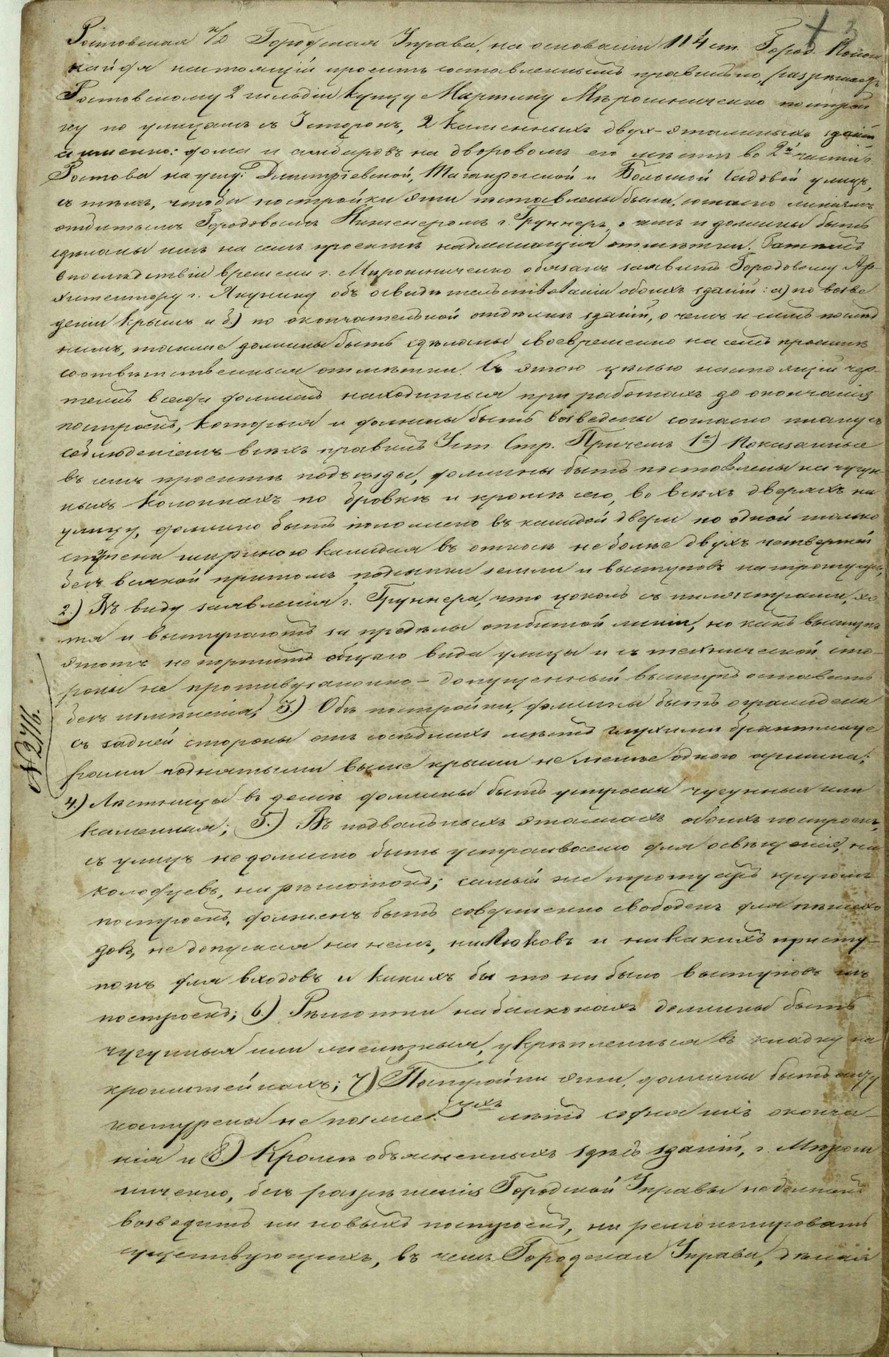 3
Ростовская н/Д Городская Управа, на основаніи 114 ст. Город. Полож.
настоящій проектъ составленнымъ правильно, разрѣшаетъ
Ростовскому 2 гильдіи купцу Мартыну Мѣрошниченко построй
ку по улицамъ съ 3 сторонъ, 2 каменныхъ двух-этажныхъ зданій
а именно: дома и амбаровъ на дворовомъ его мѣстѣ во 2й части г.
Ростова на углу Дмитріевской, Таганрогской и Большой Садовой улицъ,
съ тѣмъ, чтобы постройки эти поставлены были, согласно линіямъ
отбитымъ Городовымъ Инженеромъ г. Грунеръ, о чемъ и должны быть
сдѣланы имъ на семъ проектѣ надлежащія отмѣтки. Затѣмъ
впослѣдствіи времени г. Мирошниченко обязанъ заявить Городовому Ар
хитектору г. Якунину объ освидѣтельствованіи обоихъ зданій: а) по выве
деніи крышъ и б) по окончательной отдѣлкѣ зданій, о чемъ и симъ послѣд
нимъ, также должны быть сдѣланы своевременно на семъ проектѣ
соотвѣтственныя отмѣтки. Съ этою цѣлью настоящій чер
тежъ всегда долженъ находиться при работахъ до окончанія
построекъ, которыя и должны быть возведены согласно плану съ
соблюденіемъ всѣхъ правилъ Уст. Стр. Причемъ 1е) Показанные
въ семъ проектѣ подъѣзды, должны быть поставлены на чугун
ныхъ колоннахъ по бровкѣ и кромѣ сего, во всѣхъ дверяхъ на
улицу, должно быть положено въ каждой двери по одной только
ступени шириною каждая въ откосъ не болѣе двухъ четвертей
безъ всякой притомъ подсыпки земли и выступовъ на тротуаръ;
2) Въ виду заявленія г. Грунера, что цоколь съ пилястрами, хо
тя и выступаютъ за предѣлы отбитой линіи, но какъ выступъ
этотъ не портитъ общаго вида улицы и съ технической сто-
роны не противузаконно – допущенный выступъ оставить
безъ измѣненія; 3) Обѣ постройки, должны быть ограждены
съ задней стороны отъ сосѣднихъ мѣстъ глухими брантмауе
рами поднятыми выше крыши не менѣе одного аршина;
4) Лѣстницы въ домѣ должны быть устроены чугунныя или
каменныя; 5.) Въ подвальныхъ этажахъ обоихъ построекъ,
съ улицъ не должно быть устраиваемо для освѣщенія, ни
колодцевъ, ни рѣшетокъ; самый же тротуаръ кругомъ
построекъ, долженъ быть совершенно свободенъ для пѣшехо
довъ, не допуская на немъ, ни люковъ и никакихъ присту-
покъ для входовъ и какихъ бы то ни было выступовъ изъ
построекъ; 6) Рѣшотки на балконахъ должны быть
чугунныя или желѣзныя, укрѣпленныя въ кладку на
кронштейнахъ; 7) Постройки эти, должны быть ошту
катурены не позже 3хъ лѣтъ со дня ихъ оконча-
нія и 8) Кромѣ объясненныхъ здѣсь зданій, г. Мирош
ниченко, безъ разрѣшенія Городской Управы не долженъ
возводить ни новыхъ построекъ, ни ремонтировать
существующихъ, въ чемъ Городская Управа,
№ 2716.